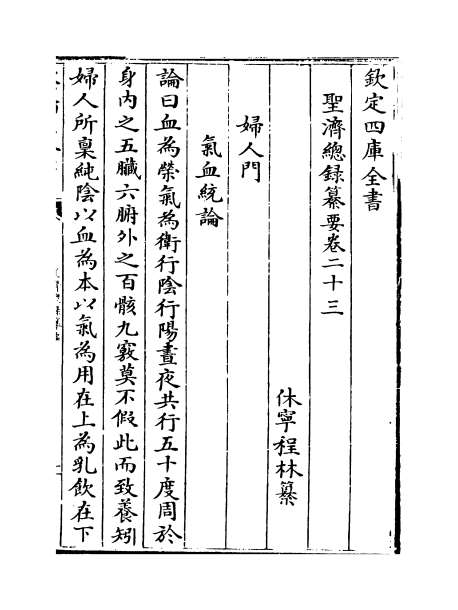 欽定四庫全書
聖濟總録纂要卷二十三
休寧程林纂
婦人門
氣血統論
論曰血為榮氣為衛行隂行陽晝夜共行五十度周於
身内之五臟六腑外之百骸九竅莫不假此而致養矧
婦人所稟純隂以血為本以氣為用在上為乳飲在下